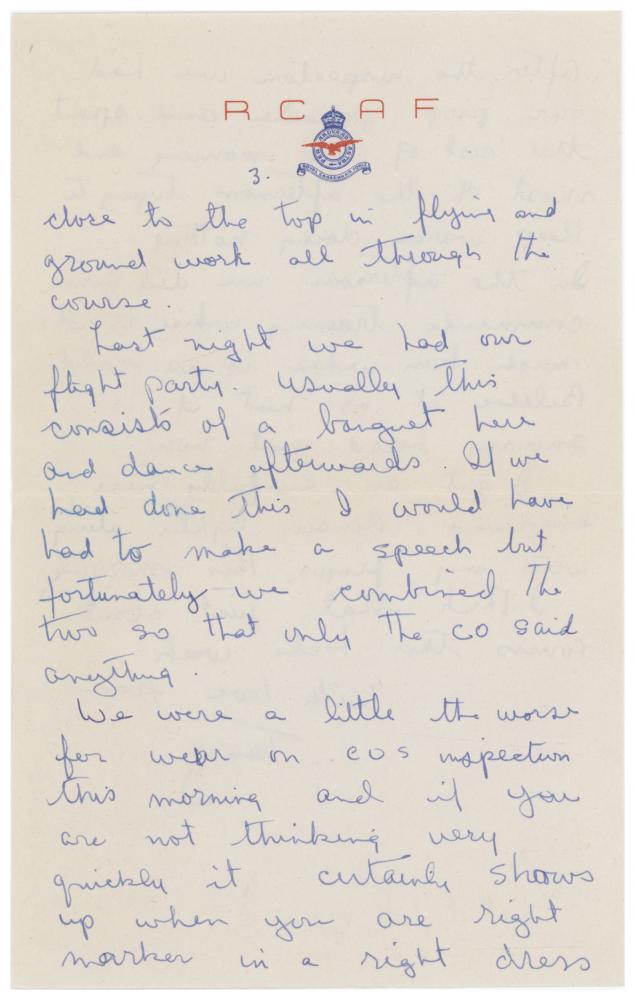 RCAF
PER ARDUA AD ASTRA
ROYAL CANADIAN AIR FORCE
3.
close to the top in flying and
ground work all through the
course.
Last night we had our
flight party. Usually this
consists of a banquet here
and dance afterwards. If we
had done this I would have
had to make a speech but
fortunately we combined the
two so that only the CO said
anything.
We were a little the worse
for wear on COS inspection
this morning and if you
are not thinking very
quickly it certainly shows
up when you are right
marker in a right dress